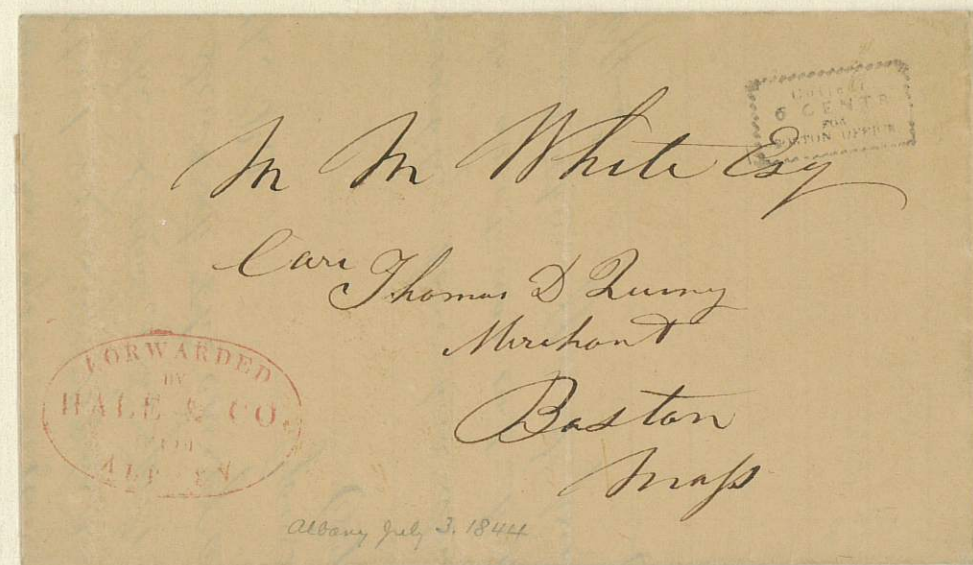 Collect
6 CENTS
FOR
BOSTON OFFICE
M M White Esq
Care Thomas D Quincy
Merchant
Boston
Mass
FORWARDED
BY
HALE & CO.
FROM
ALBANY
Albany July 3. 1844